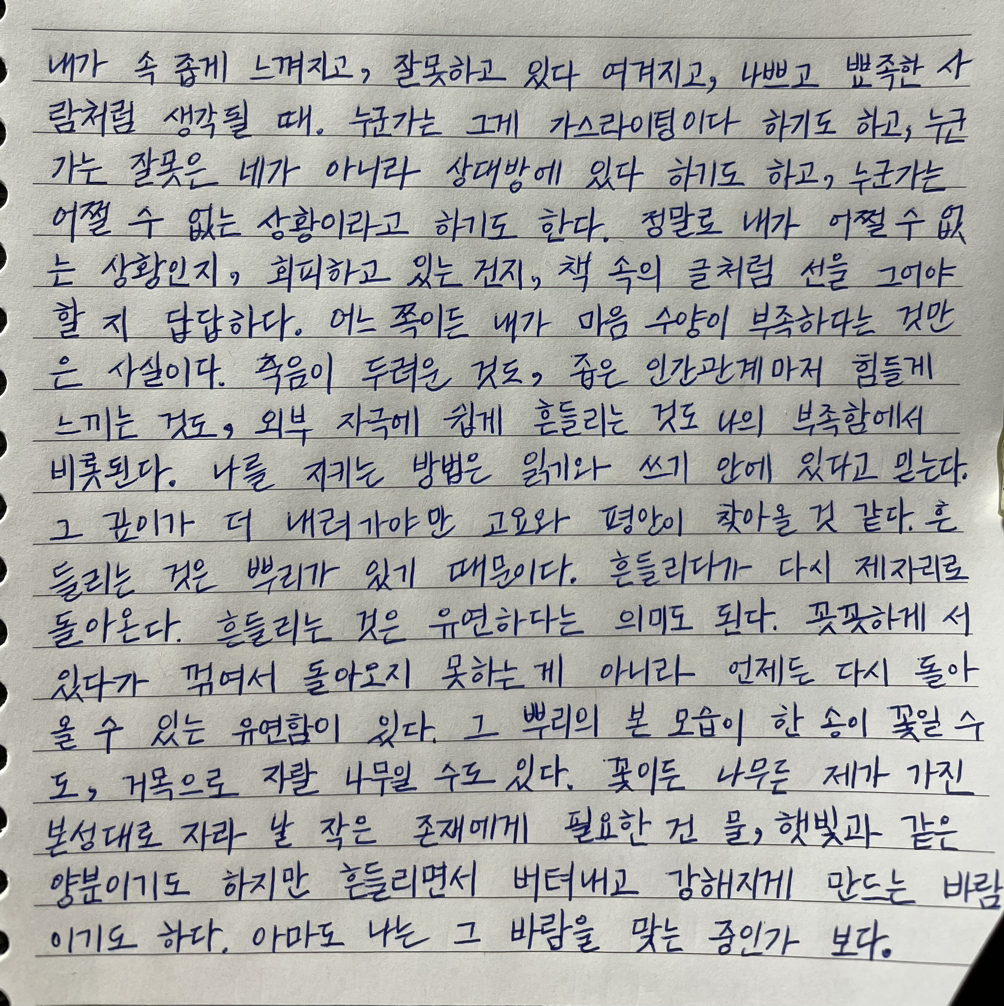 내가 속 좁게 느껴지고, 잘못하고 있다 여겨지고, 나쁘고 뾰족한 사
람처럼 생각될 때. 누군가는 그게 가스라이팅이다 하기도 하고, 누군
가는 잘못은 네가 아니라 상대방에 있다 하기도 하고, 누군가는
어쩔 수 없는 상황이라고 하기도 한다. 정말로 내가 어쩔 수 없
는 상황인지, 회피하고 있는 건지, 책 속의 글처럼 선을 그어야
할 지 답답하다. 어느 쪽이든 내가 마음 수양이 부족하다는 것만
은 사실이다. 죽음이 두려운 것도, 좁은 인간관계마저 힘들게
느끼는 것도, 외부 자극에 쉽게 흔들리는 것도 나의 부족함에서
비롯된다. 나를 지키는 방법은 읽기와 쓰기 안에 있다고 믿는다.
그 깊이가 더 내려가야만 고요와 평안이 찾아올 것 같다. 흔
들리는 것은 뿌리가 있기 때문이다. 흔들리다가 다시 제자리로
돌아온다. 흔들리는 것은 유연하다는 의미도 된다. 꼿꼿하게 서
있다가 꺾여서 돌아오지 못하는 게 아니라 언제든 다시 돌아
올 수 있는 유연함이 있다. 그 뿌리의 본 모습이 한 송이 꽃일 수
도, 거목으로 자랄 나무일 수도 있다. 꽃이든 나무든 제가 가진
본성대로 자라 날 작은 존재에게 필요한 건 물, 햇빛과 같은
양분이기도 하지만 흔들리면서 버텨내고 강해지게 만드는 바람
이기도 하다. 아마도 나는 그 바람을 맞는 중인가 보다.